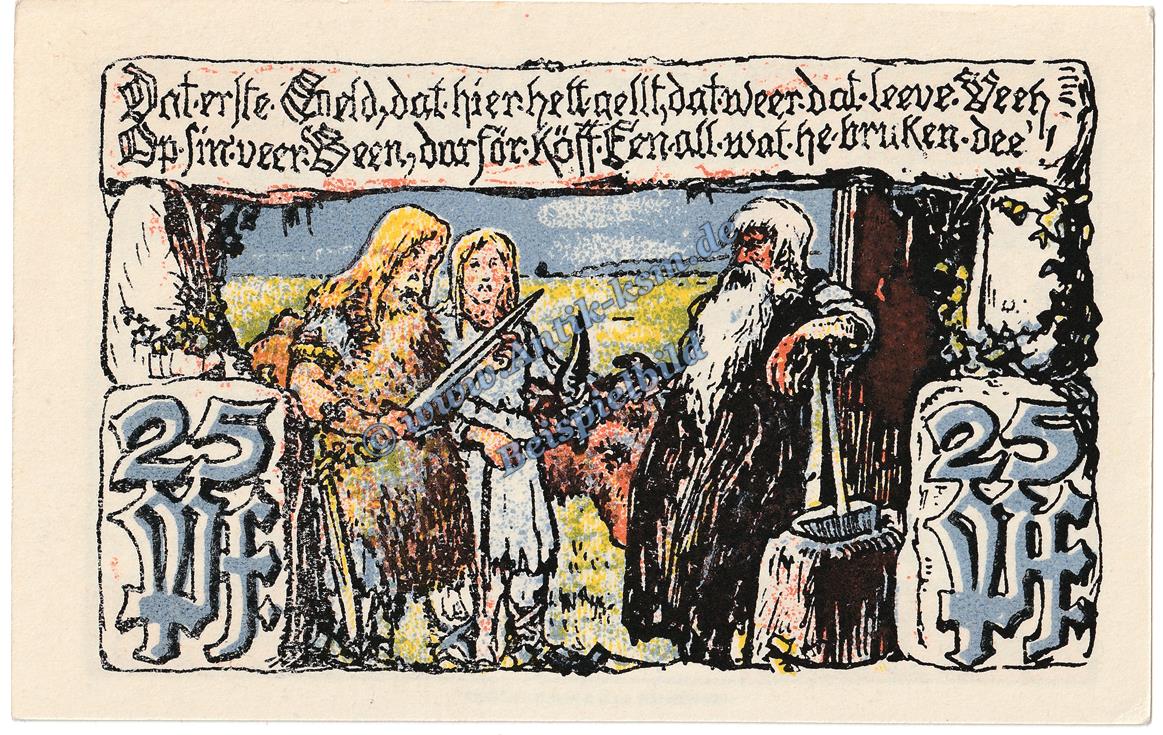 Dat erste Geld, dat hier hett gellt, dat weer dat leeve Veeh
Op sin veer Been, darför köff Een all wat he bruken dee'!
© www.Antik-ksm.de
Beispielbild
25
Pf
25
Pf